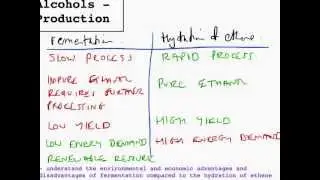 Alcohols -
Production
Fermentation
Hydration of ethene
SLOW PROCESS
RAPID PROCESS
IMPURE ETHANOL
REQUIRES FURTHER
PROCESSING
PURE ETHANOL
LOW YIELD
HIGH YIELD
LOW ENERGY DEMAND
HIGH ENERGY DEMAND
RENEWABLE RESOURCE
o understand the environmental and economic advantages and
disadvantages of fermentation compared to the hydration of ethene